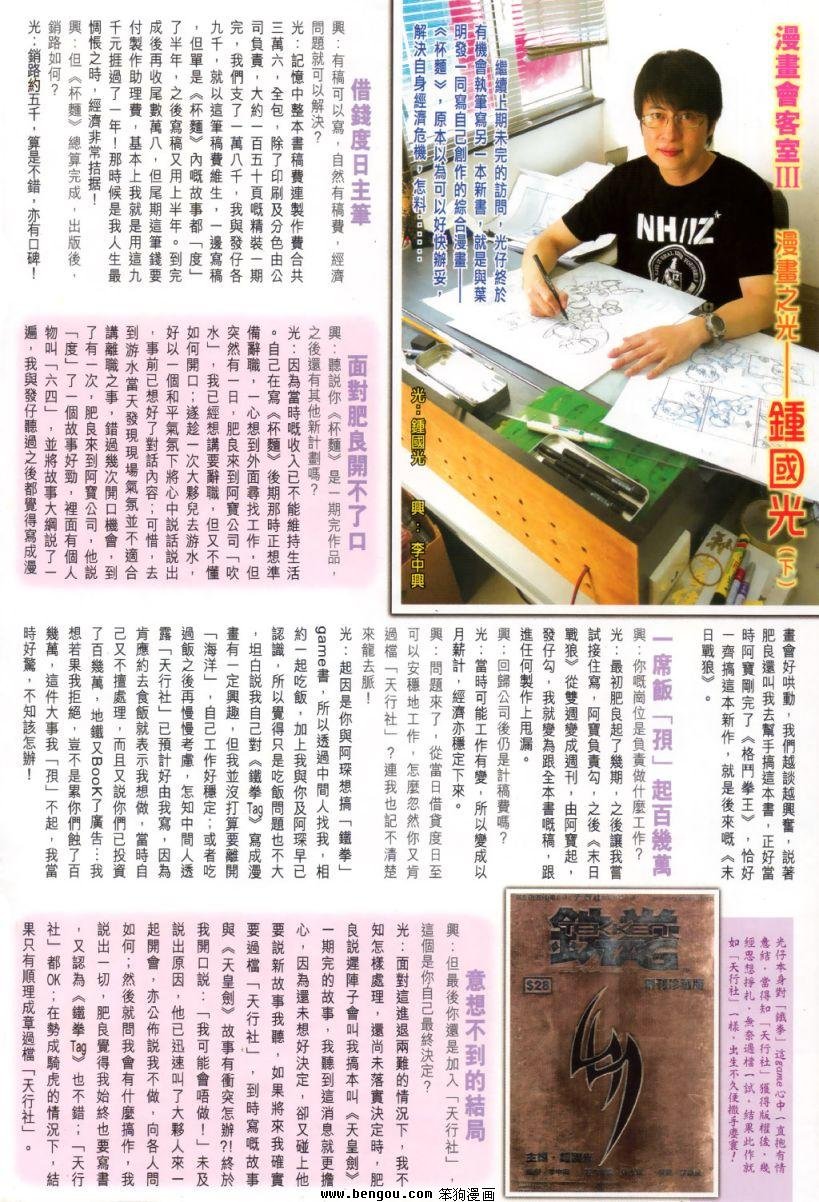 漫畫會客室III
漫畫之光——鍾國光（下）
繼續上期未完的訪問，光仔終於
有機會執筆寫另一本新書，就是與葉
明發一同寫自己創作的綜合漫畫——
《杯麵》，原本以為可以好快辦妥，
解決自身經濟危機，怎料……
光：鍾國光　興：李中興
借錢度日主筆
興：有稿可以寫，自然有稿費，經濟
問題就可以解決？
光：記憶中整本書稿費連製作費合共
三萬六，全包，除了印刷及分色由公
司負責，大約一百五十頁嘅精裝一期
完，我們支了一萬八千，我與發仔各
九千，就以這筆稿費維生，一邊寫稿
，但單是《杯麵》內嘅故事都「度」
了半年，之後寫稿又用上半年。到完
成後再收尾數萬八，但尾期這筆錢要
付製作助理費，基本上我就是用這九
千元捱過了一年！那時候是我人生最
惆悵之時，經濟非常拮据！
興：但《杯麵》總算完成，出版後，
銷路如何？
光：銷路約五千，算是不錯，亦有口碑！
面對肥良開不了口
興：聽說你《杯麵》是一期完作品，
之後還有其他新計劃嗎？
光：因為當時嘅收入已不能維持生活
。自己在寫《杯麵》後期那時正想準
備辭職，一心想到外面尋找工作，但
突然有一日，肥良來到阿寶公司「吹
水」，我已經想講要辭職，但又不懂
如何開口；遂趁一次大夥兒去游水，
好以一個和平氣氛下將心中說話說出
，事前已想好了對話內容；可惜，去
到游水當天發現現場氣氛並不適合
講離職之事，錯過幾次開口機會，到
了有一次，肥良來到阿寶公司，他說
「度」了一個故事好勁，裡面有個人
物叫「六四」，並將故事大綱說了一
遍，我與發仔聽過之後都覺得寫成漫
畫會好哄動，我們越談越興奮，說著
肥良還叫我去幫手搞這本書，正好當
時阿寶剛完了《格鬥拳王》，恰好
一齊搞這本新作，就是後來嘅《末
日戰狼》。
一席飯「孭」起百幾萬
興：你嘅崗位是負責做什麼工作？
光：最初肥良起了幾期，之後讓我嘗
試接住寫，阿寶負責勾，之後《末日
戰狼》從雙週變成週刊，由阿寶起，
發仔勾，我就變為跟全本書嘅稿，跟
進任何製作上甩漏。
興：回歸公司後仍是計稿費嗎？
光：當時可能工作有變，所以變成以
月薪計，經濟亦穩定下來。
興：問題來了，從當日借貸度日至
可以安穩地工作，怎麼忽然你又肯
過檔「天行社」？連我也記不清楚
來龍去脈！
光：起因是你與阿琛想搞「鐵拳」
game書，所以透過中間人找我，相
約一起吃飯，加上我與你及阿琛早已
認識，所以覺得只是吃飯問題也不大
，坦白說我自己對《鐵拳Tag》寫成漫
畫有一定興趣，但我並沒打算要離開
「海洋」，自己工作好穩定；或者吃
過飯之後再慢慢考慮，怎知中間人透
露「天行社」已預計好由我寫，因為
肯應約去食飯就表示我想做，當時自
己又不擅處理，而且又說你們已投資
了百幾萬，地鐵又BooK了廣告…我
想若果我拒絕，豈不是累你們蝕了百
幾萬，這件大事我「孭」不起，我當
時好驚，不知該怎辦！
光仔本身對「鐵拳」這game心中一直抱有情
意結，當得知「天行社」獲得版權後，幾
經思想掙扎，無奈過檔一試，結果此作就
如「天行社」一樣，出生不久便撒手塵寰！
鉄拳
TEKKEN
TAG
創刊珍藏版
$28
主編・鍾國光
意想不到的結局
興：但最後你還是加入「天行社」，
這個是你自己最終決定？
光：面對這進退兩難的情況下，我不
知怎樣處理，還尚未落實決定時，肥
良說遲陣子會叫我搞本叫《天皇劍》
一期完的故事，我聽到這消息就更擔
心，因為還未想好決定，卻又碰上他
要說新故事我聽，如果將來我確實
要過檔「天行社」，到時寫嘅故事
與《天皇劍》故事有衝突怎辦!?終於
我開口說：「我可能會唔做！」未及
說出原因，他已迅速叫了大夥人來一
起開會，亦公佈說我不做，向各人問
如何；然後就問我會有什麼搞作，我
說出一切，肥良覺得我始終也要寫書
，又認為《鐵拳Tag》也不錯；「天行
社」都OK；在勢成騎虎的情況下，結
果只有順理成章過檔「天行社」。
NH/IZ
www.bengou.com 笨狗漫画